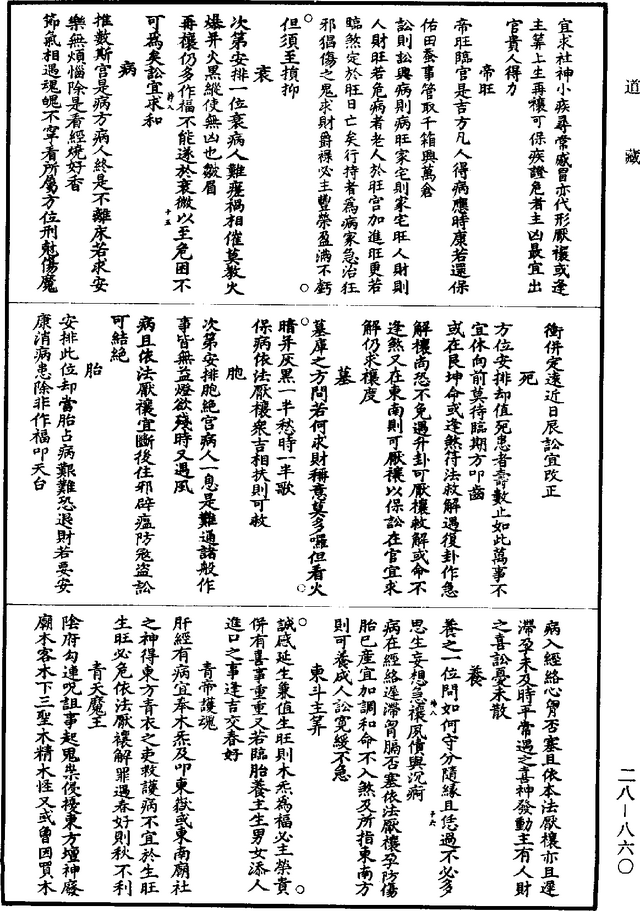 道藏
宜求社神小疾尋常感冒亦代形厭禳或逢
主筭上生再禳可保疾證危者主凶最宜出
官貴人得力
帝旺
帝旺臨官是吉方凡人得病應時康若還保
佑田蚕事管取千箱與萬倉
訟則訟興病則病旺家宅則家宅旺人財則
人財旺若危病者老人於旺宮加進旺更若
臨煞定於旺日亡矣行持者為病家急治狂
邪猖傷之鬼求財爵祿必主豐榮盈滿不虧
但須至損抑
衰
次第安排一位衰病人難瘥禍相催莫教火
爆并火黑縱使無凶也皺眉
再禳仍多作福不能遂於衰微以至危困不
可為矣訟宜求和
病
推數斯宮是病方病人終是不離床若求安
樂無煩惱除是看經燒好香
節氣相遇魂魄不寧看所屬方位刑尅傷魔
衝併定遠近日辰訟宜改正
死
方位安排却值死患者壽數止如此萬事不
宜休向前莫待臨期方叩齒
或在艮坤命或逢煞符法救解遇復卦作急
解禳尚恐不免遇升卦可厭禳救解或命不
逢煞又在東南則可厭禳以保訟在官宜求
解仍求禳度
墓
墓庫之方問若何求財稱意莫多囉但看火
暗并灰黑一半愁時一半歌
保病依法厭禳衆吉相扶則可救
胞
次第安排胞絕宮病人一息是難通諸般作
事皆無益燈欲殘時又遇風
病且依法厭禳宜斷後住邪辟瘟防冤盜訟
可結絕
胎
安排此位却當胎占病艱難恐退財若要安
康消病患除非作福叩天台
病入經絡心胷否塞且依本法厭禳亦且遲
滯孕未及時平常遇之喜神發動主有人財
之喜訟憂未散
養
養之一位問如何守分隨緣且恁過不必多
思生妄想急禳夙債與沉痾
病在經絡遲滯胷膈否塞依法厭禳孕防傷
胎已產宜加調和命不入煞及所指東南方
則可養成人訟寬緩不急
東斗主筭
誠感延生筭值生旺則木炁為福必主榮貴
併有喜事重重又若臨胎養主生男女添人
進口之事逢吉交春好
青帝護魂
肝經有病宜奉木炁及叩東嶽或東南廟社
之神得東方青衣之吏救護病不宜於生旺
生旺必危依法厭禳解罪遇春好則秋不利
青天魔王
陰府勾連呪詛事起鬼祟侵擾東方壇神廢
廟木客木下三聖木精木怪又或曾因買木
二八－八六〇